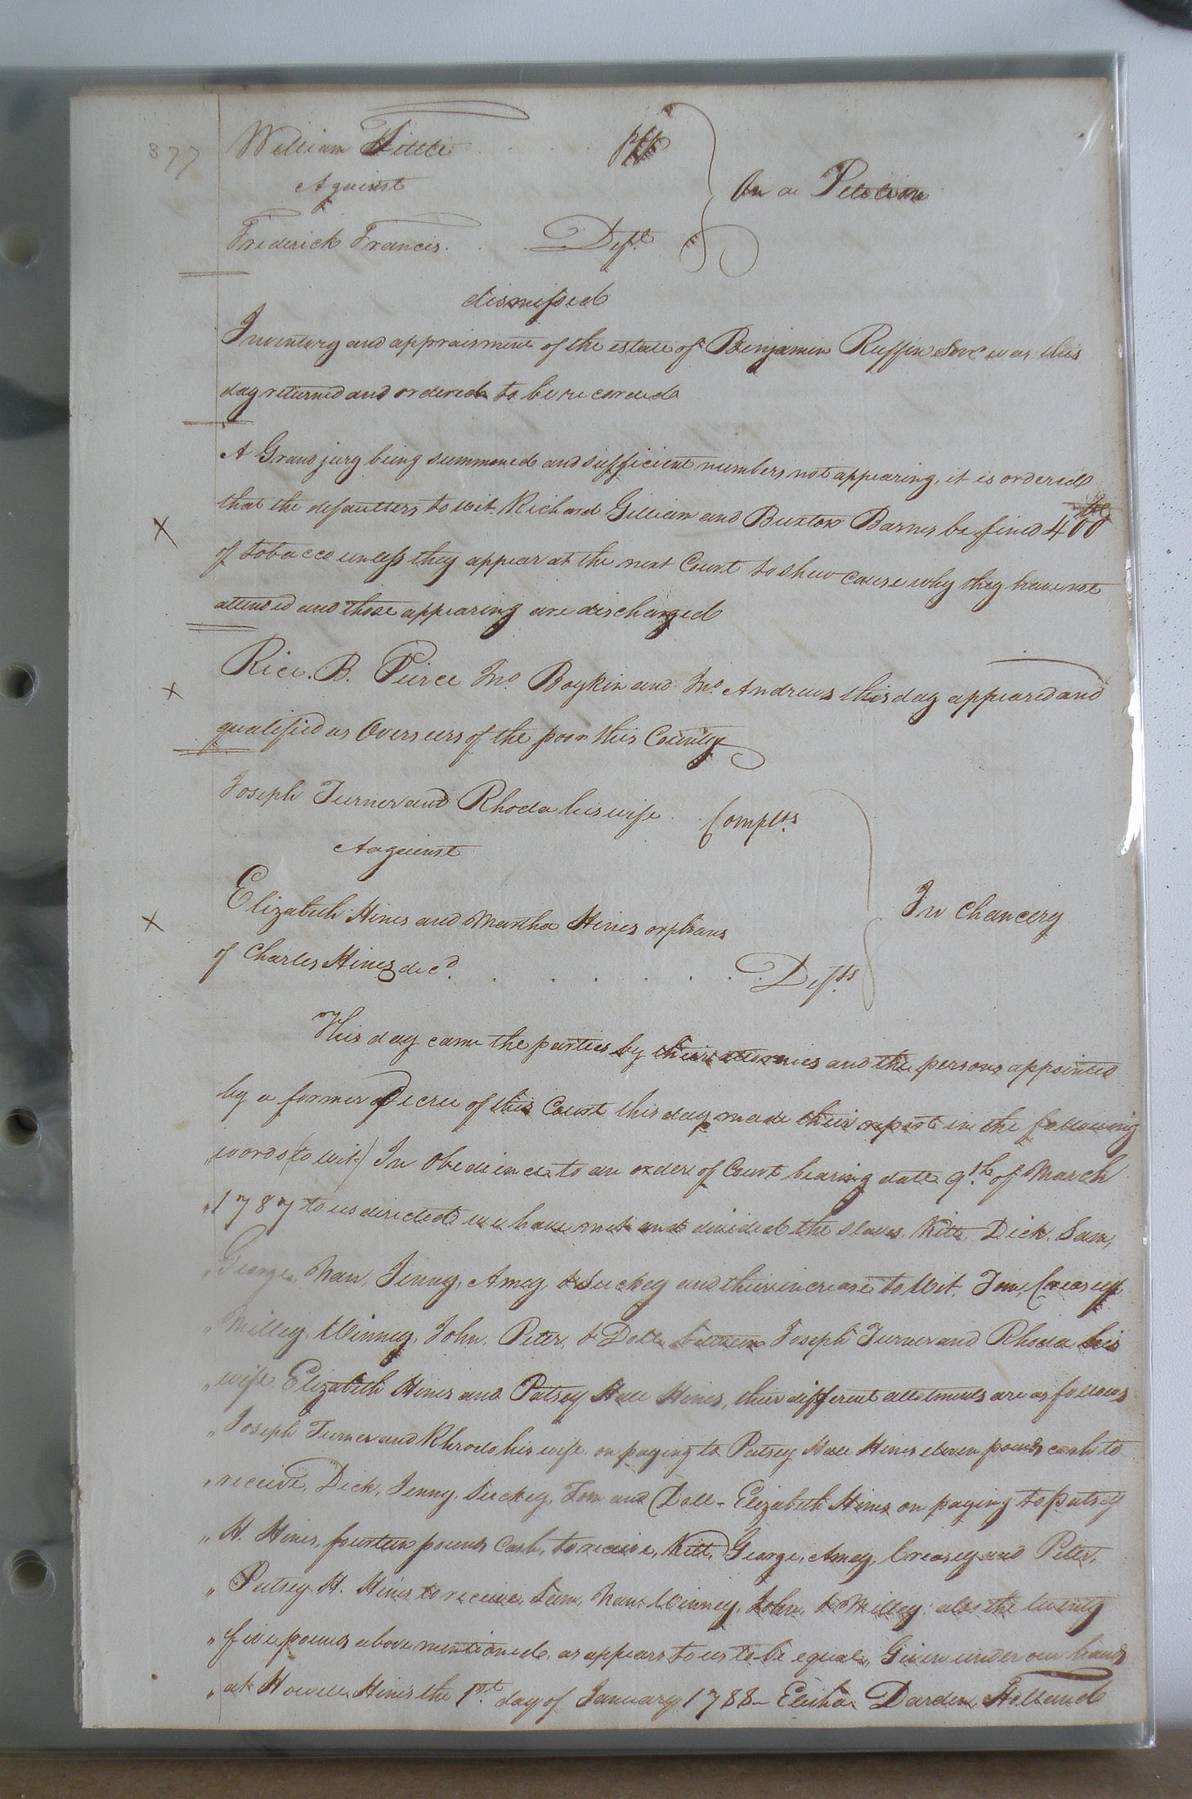 877
William Tittle . . . Plt
Against
On a Petition
Frederick Francis . . . Deft.
dismissed
Inventory and appraisment of the estate of Benjamin Ruffin Senr was this
day returned and ordered to be recorded
A Grand jury being summoned and sufficient numbers not appearing, it is ordered
that the defaulters to wit. Richard Gilliam and Buxton Barnes be fined 400 lbs
of tobacco unless they appear at the next Court to shew cause why they have not
attended and those appearing are discharged
Rice. B. Pierce Jno. Boykin and Jno. Andrews this day appeared and
qualified as Overseers of the poor this County
Joseph Turner and Rhoda his wife . Complts
Aagainst
In Chancery
Elizabeth Hines and Martha Hines orphans
of Charles Hines decd. . . . . . . Defts
This day came the parties by their attornies and the persons appointed
by a former Decree of this Court this day made their report in the following
words (to wit) In Obedience to an order of Court bearing date 9th. of March
" 1787 to us directed we have met and divided the slaves, Kitt, Dick, Sam,
" George, Nan, Jenny, Amey, & Suckey and their increase to Wit. Tom, Creasey
" Milley, Winney, John, Peter, & Doll between Joseph Turner and Rhoda his
" wife Elizabeth Hines and Patsey Hall Hines, their different allotments are as follows
" Joseph Turner and Rhoda his wife on paying to Patsey Hall Hines eleven pounds cash to
" receive, Dick, Jenny, Suckey, Tom and Doll - Elizabeth Hines on paying to patsey
" H. Hines, fourteen pounds Cash, to receive, Kitt, George, Amey, Creasey and Peter,
" Patsey H. Hines to receive, Sam, Nan, Winney, John, & Milley: also the twenty
" five pounds above mentioned, as appears to us to be equal, Given under our hands
" at Howell Hines the 1st. day of January 1788 - Elisha Darden, Holland